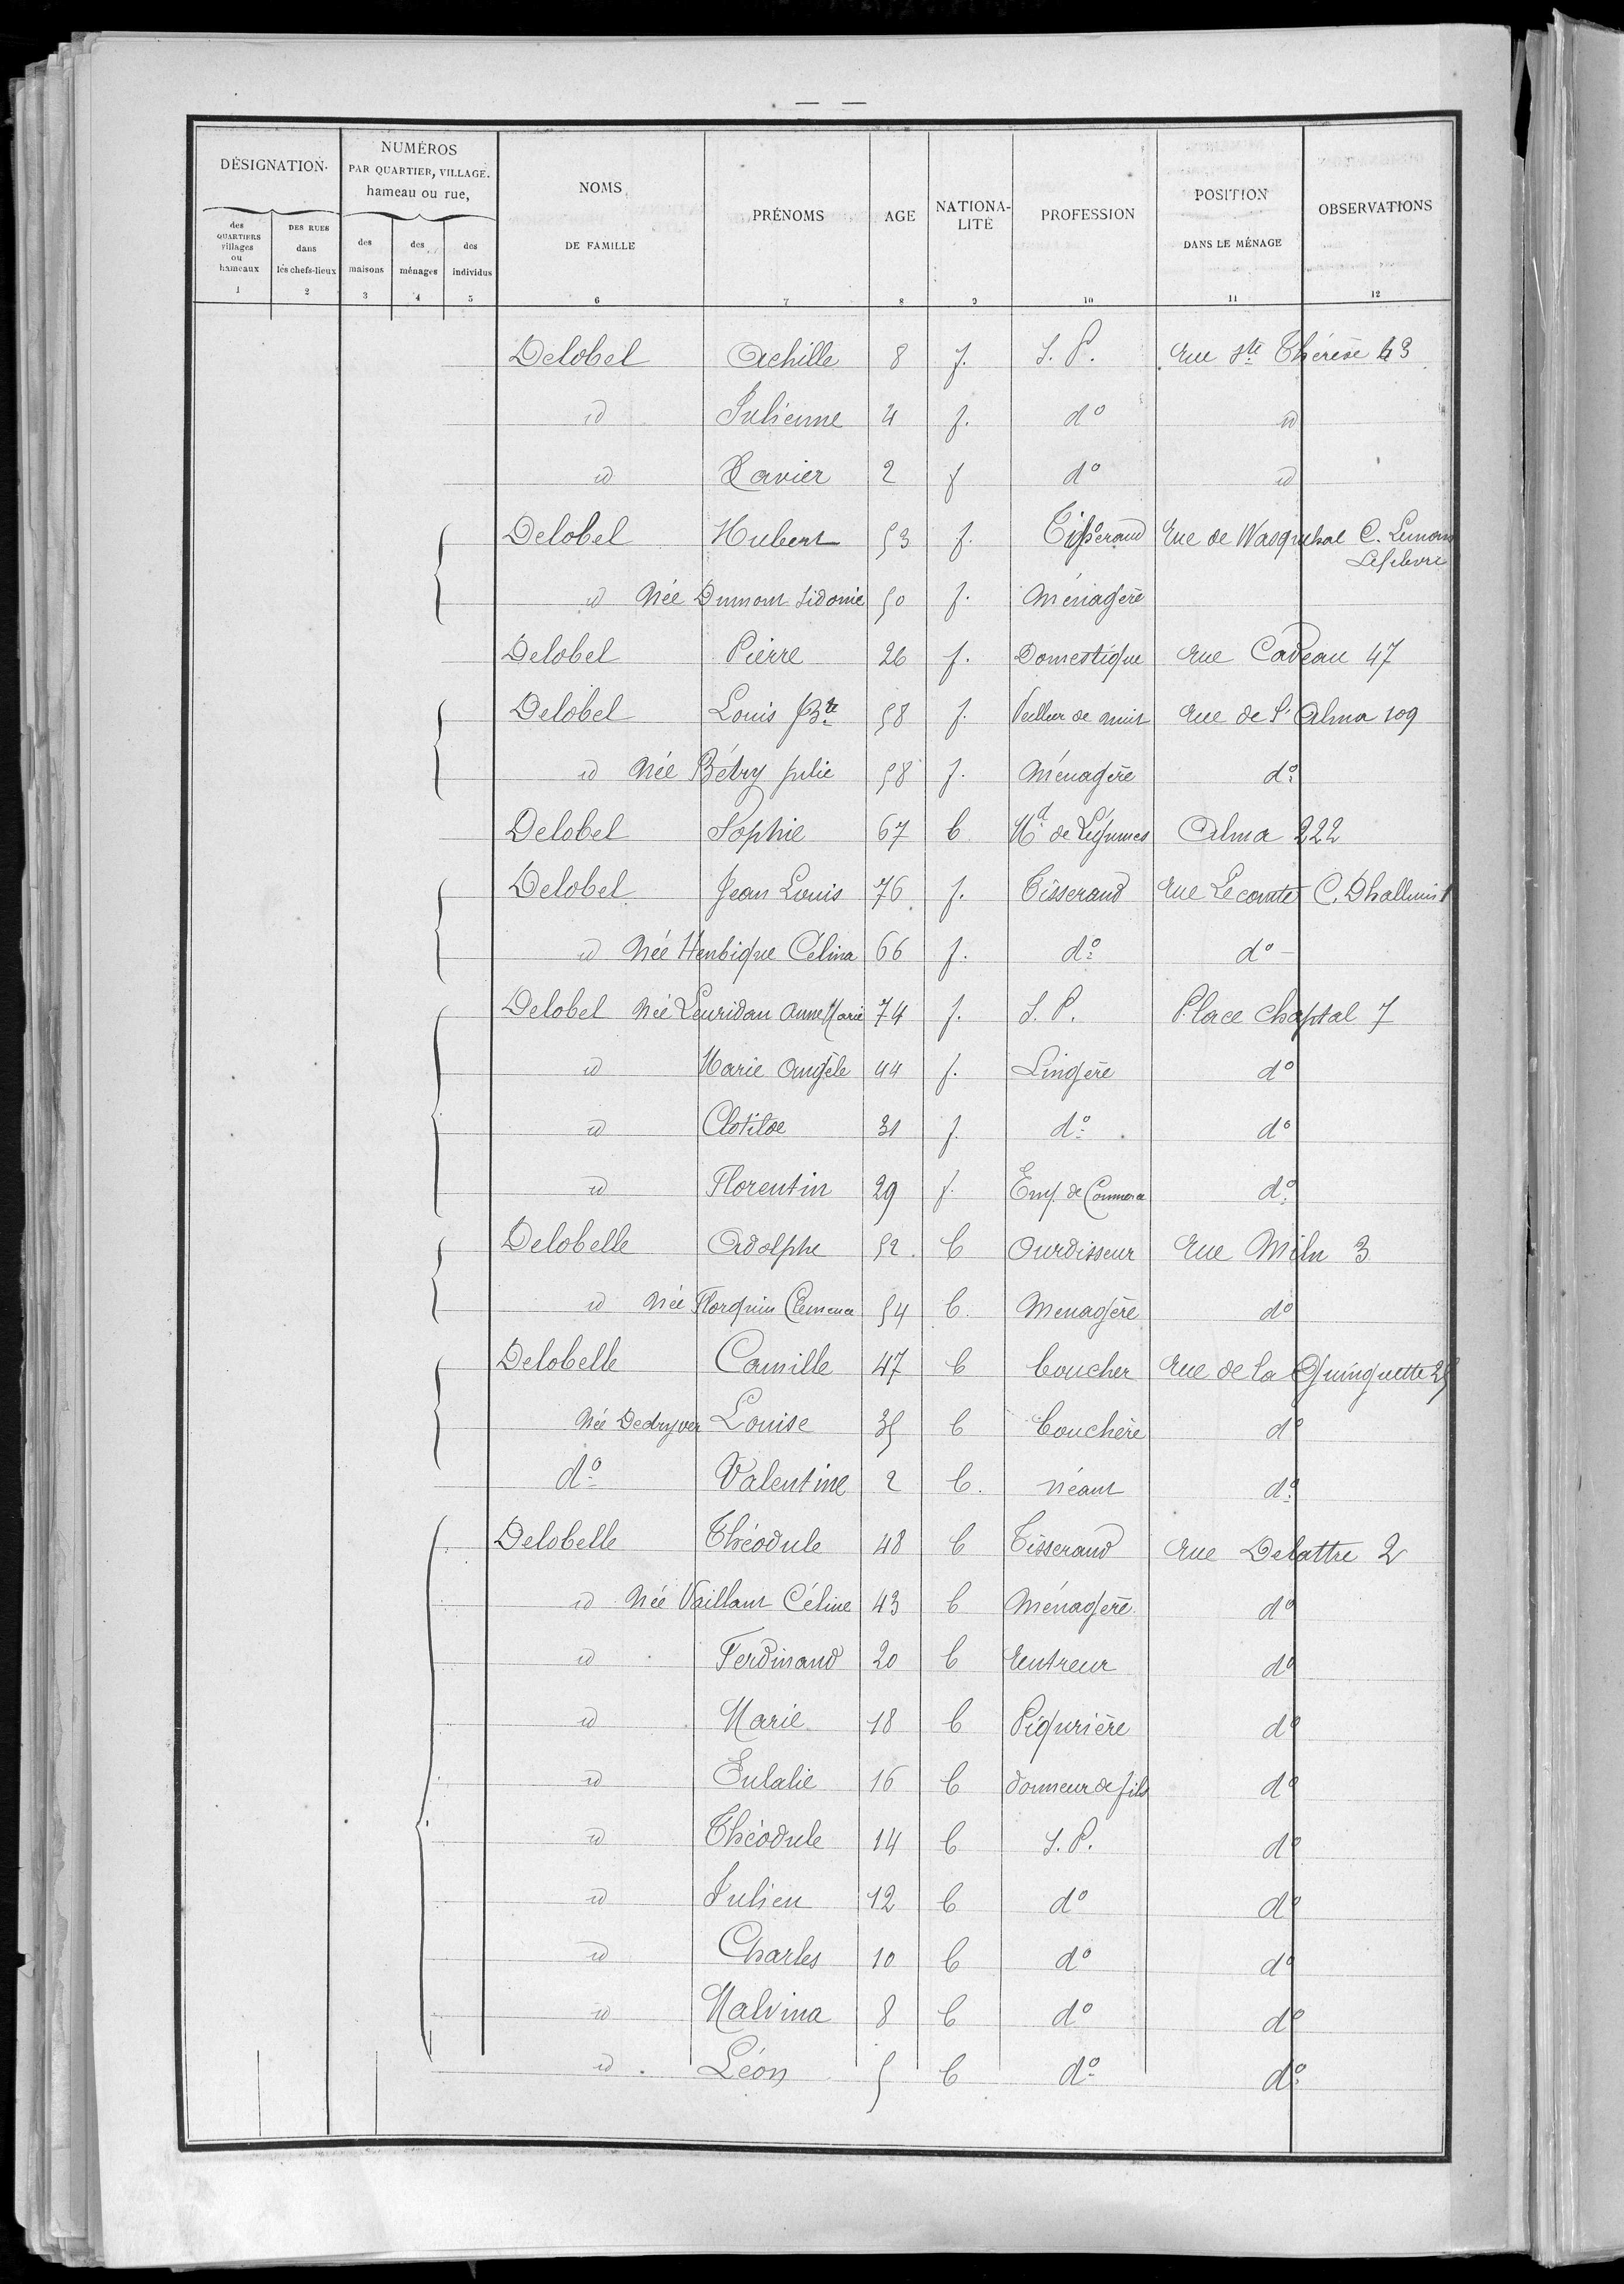 — —
DÉSIGNATION.
NUMÉROS
PAR QUARTIER, VILLAGE.
hameau ou rue,
NOMS
DE FAMILLE
PRÉNOMS
AGE
NATIONA-
LITÉ
PROFESSION
POSITION
DANS LE MÉNAGE
OBSERVATIONS
des
QUARTIERS
villages
ou
hameaux
DES RUES
dans
les chefs-lieux
des
maisons
des
ménages
des
individus
1 2 3 4 5 6 7 8 9 10 11 12
Delobel Achille 8 f. S. P. Rue Ste Thérèse 43
id Julienne 4 f. do id
id Xavier 2 f do id
Delobel Hubert 53 f. Tisserand Rue de Wasquehal C. Lemaire
Lefebvre
id Née Dumont Sidonie 50 f. Ménagère
Delobel Pierre 26 f. Domestique Rue Cadeau 47
Delobel Louis Bte 58 f. Veilleur de nuit Rue de l'Alma 109
id Née Bétry Julie 58 f. Ménagère do
Delobel Sophie 67 b Mde de Légumes Alma 222
Delobel Jean Louis 76 f. Tisserand Rue Lecomte C. Dhalluin 1
id Née Henbique Célina 66 f. do do
Delobel Née Leuridan Anne Marie 74 f. S. P. Place Chaptal 7
id Marie Angèle 44 f. Lingère do
id Clotilde 31 f. do do
id Florentin 29 f. Emp. de Commerce do
Delobelle Adolphe 52 b Ourdisseur Rue Miln 3
id Née Florquin Clemence 54 b. Menagère do
Delobelle Camille 47 b boucher Rue de la Guinguette 25
Née Dedryver Louise 35 b bouchère do
do Valentine 2 b. néant do
Delobelle Théodule 48 b Tisserand Rue Delattre 2
id Née Vaillant Céline 43 b Ménagère do
id Ferdinand 20 b Rentreur do
id Marie 18 b Piqurière do
id Eulalie 16 b donneur de fils do
id Théodule 14 b S. P. do
id Julien 12 b do do
id Charles 10 b do do
id Malvina 8 b do do
id Léon 5 b do do